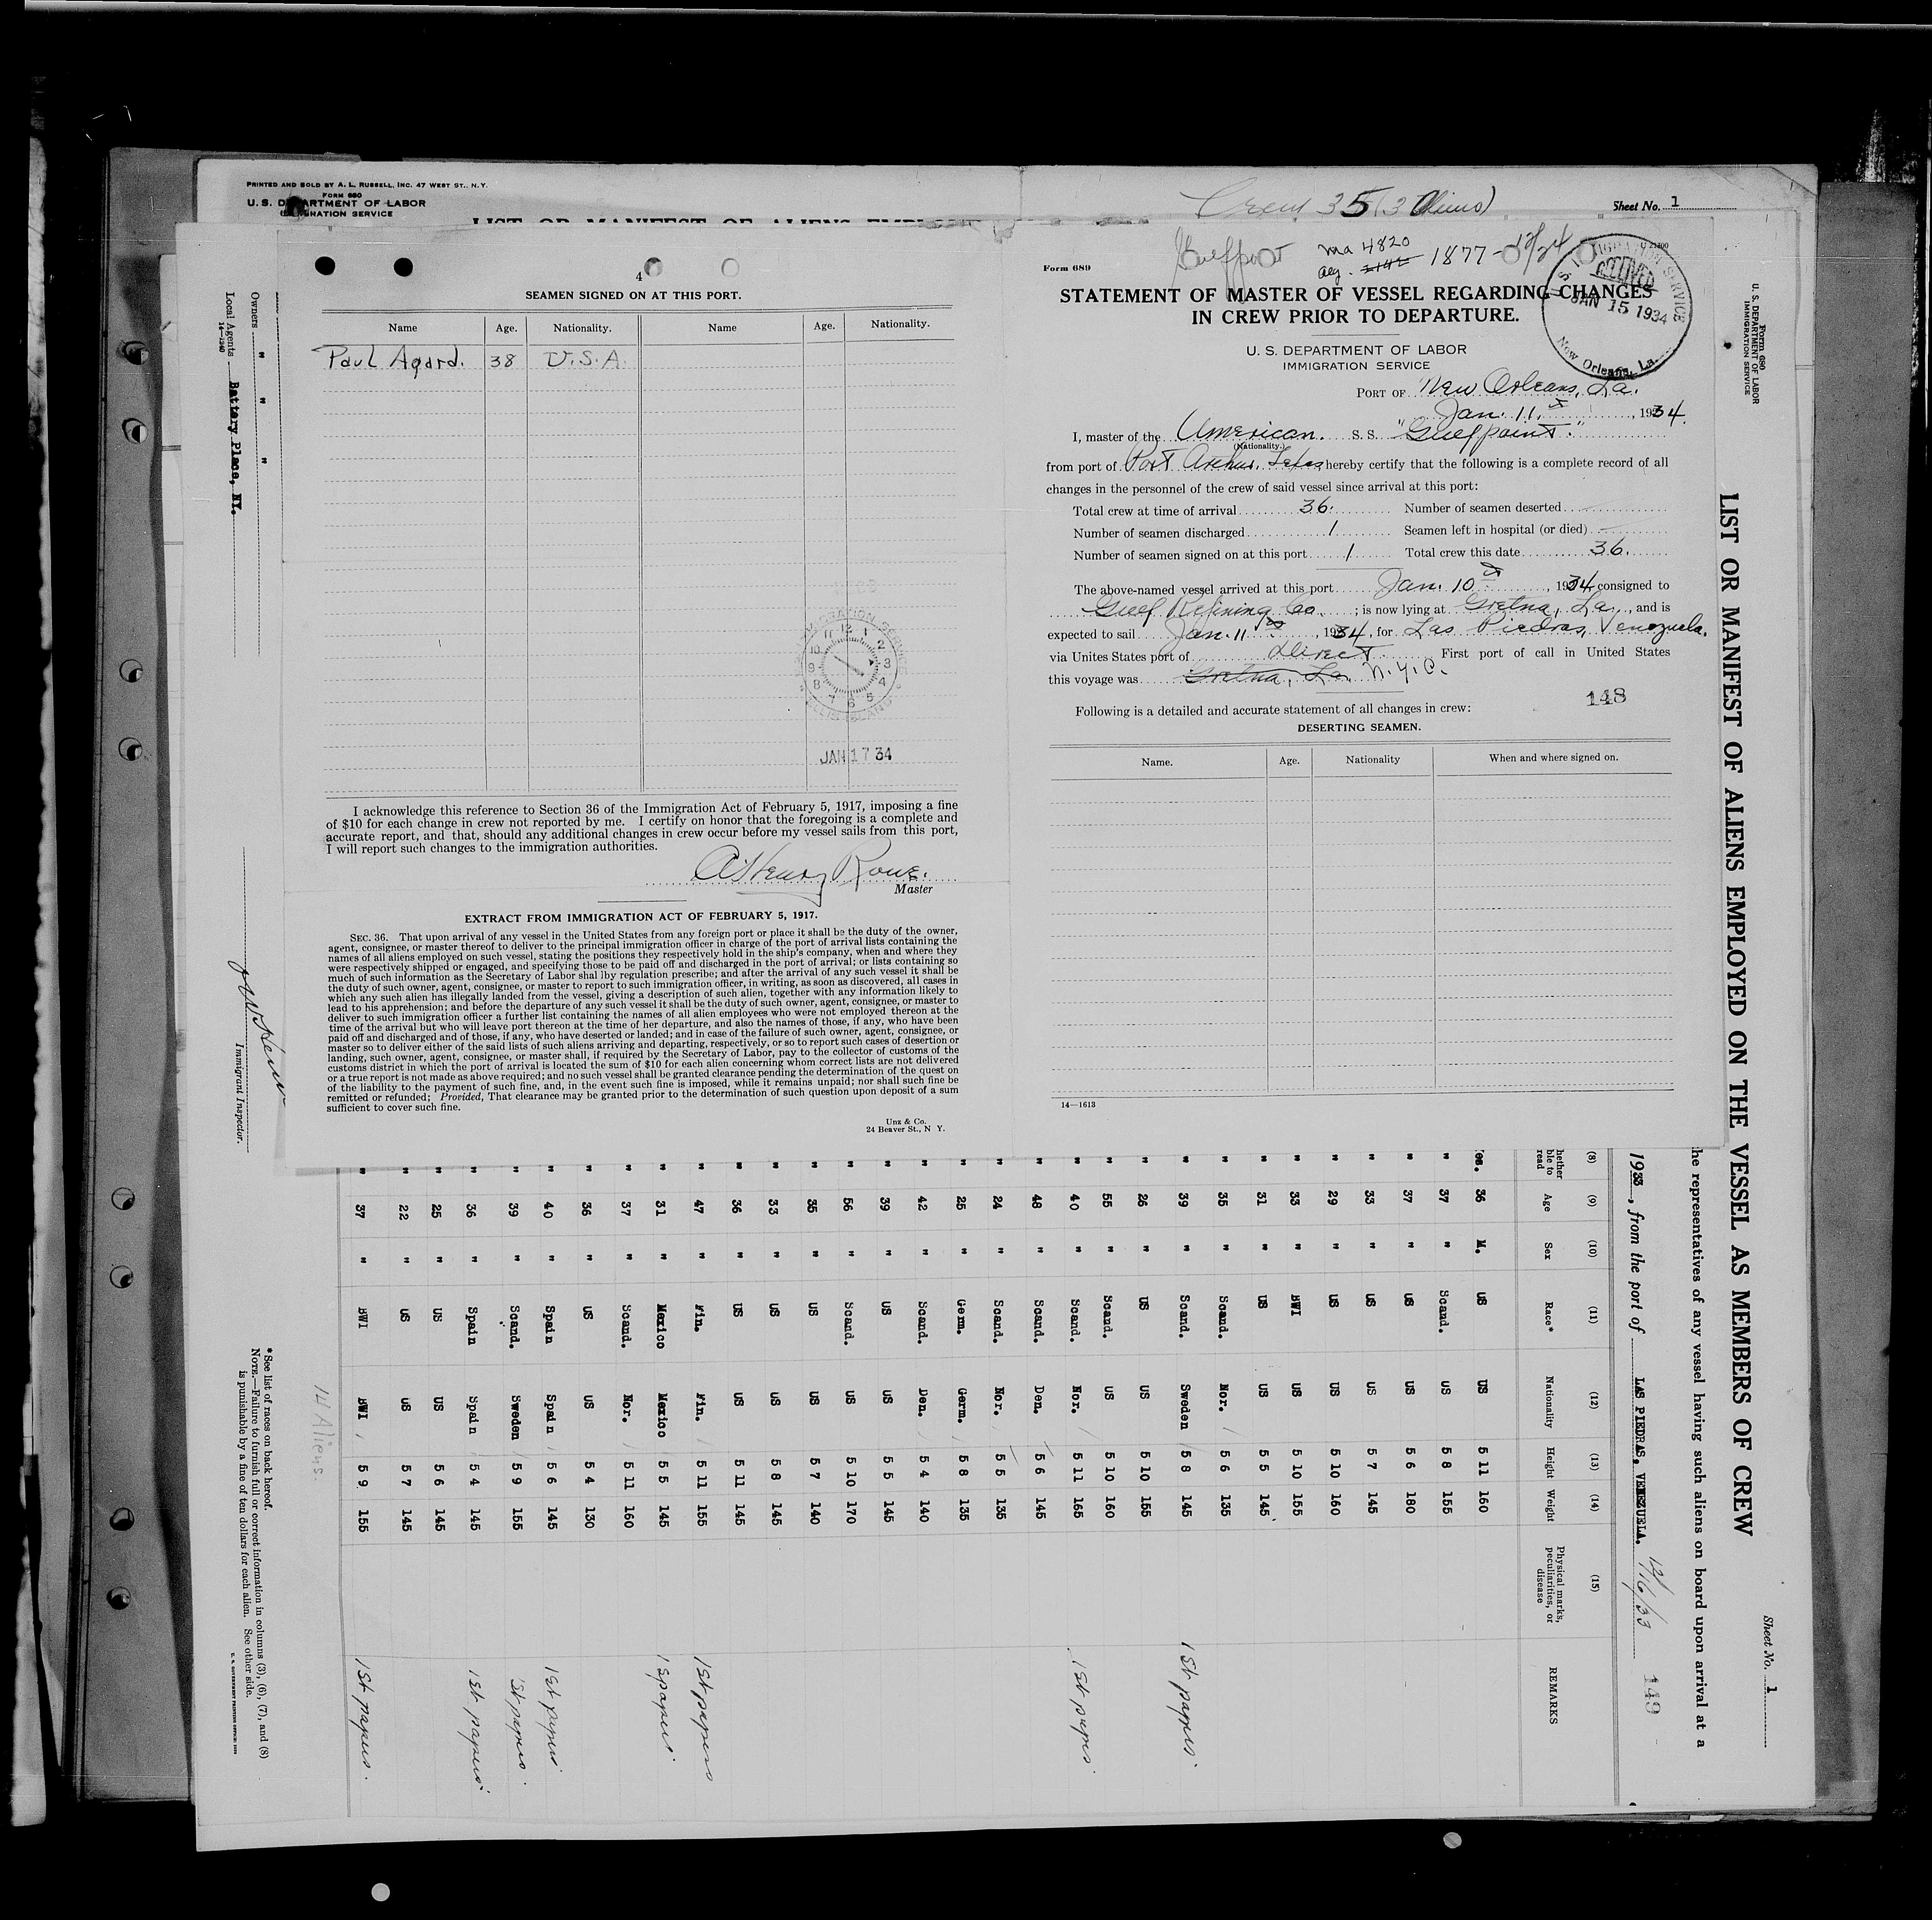 PRINTED AND SOLD BY A. L. RUSSELL, INC. 47 WEST ST., N. Y.
FORM 680
U. S. DEPARTMENT OF LABOR
IMMIGRATION SERVICE
LIST OR MANIFEST OF ALIENS
Crew 35 (3 Aliens)
Sheet No. 1
4
SEAMEN SIGNED ON AT THIS PORT.
Name Age. Nationality. Name Age. Nationality.
Paul Agard. 38 U.S.A.
ELLIS ISLAND
JAN 17 34
I acknowledge this reference to Section 36 of the Immigration Act of February 5, 1917, imposing a fine
of $10 for each change in crew not reported by me. I certify on honor that the foregoing is a complete and
accurate report, and that, should any additional changes in crew occur before my vessel sails from this port,
I will report such changes to the immigration authorities.
Henry Rowe.
Master
EXTRACT FROM IMMIGRATION ACT OF FEBRUARY 5, 1917.
SEC. 36. That upon arrival of any vessel in the United States from any foreign port or place it shall be the duty of the owner,
agent, consignee, or master thereof to deliver to the principal immigration officer in charge of the port of arrival lists containing the
names of all aliens employed on such vessel, stating the positions they respectively hold in the ship's company, when and where they
were respectively shipped or engaged, and specifying those to be paid off and discharged in the port of arrival; or lists containing so
much of such information as the Secretary of Labor shal lby regulation prescribe; and after the arrival of any such vessel it shall be
the duty of such owner, agent, consignee, or master to report to such immigration officer, in writing, as soon as discovered, all cases in
which any such alien has illegally landed from the vessel, giving a description of such alien, together with any information likely to
lead to his apprehension; and before the departure of any such vessel it shall be the duty of such owner, agent, consignee, or master to
deliver to such immigration officer a further list containing the names of all alien employees who were not employed thereon at the
time of the arrival but who will leave port thereon at the time of her departure, and also the names of those, if any, who have been
paid off and discharged and of those, if any, who have deserted or landed; and in case of the failure of such owner, agent, consignee, or
master so to deliver either of the said lists of such aliens arriving and departing, respectively, or so to report such cases of desertion or
landing, such owner, agent, consignee, or master shall, if required by the Secretary of Labor, pay to the collector of customs of the
customs district in which the port of arrival is located the sum of $10 for each alien concerning whom correct lists are not delivered
or a true report is not made as above required; and no such vessel shall be granted clearance pending the determination of the quest on
of the liability to the payment of such fine, and, in the event such fine is imposed, while it remains unpaid; nor shall such fine be
remitted or refunded; Provided, That clearance may be granted prior to the determination of such question upon deposit of a sum
sufficient to cover such fine.
Unz & Co.
24 Beaver St., N Y.
Form 689
Gulfpoint ma 4820 1877
STATEMENT OF MASTER OF VESSEL REGARDING CHANGES
IN CREW PRIOR TO DEPARTURE.
U. S. IMMIGRATION SERVICE
RECEIVED
JAN 15 1934
New Orleans, La.
U. S. DEPARTMENT OF LABOR
IMMIGRATION SERVICE
PORT OF New Orleans, La.
Jan. 11, 1934.
I, master of the American. S. S. "Gulfpoint."
(Nationality.)
from port of Port Arthur, Texas hereby certify that the following is a complete record of all
changes in the personnel of the crew of said vessel since arrival at this port:
Total crew at time of arrival 36. Number of seamen deserted
Number of seamen discharged 1 Seamen left in hospital (or died)
Number of seamen signed on at this port 1 Total crew this date 36.
The above-named vessel arrived at this port Jan. 10, 1934 consigned to
Gulf Refining Co. ; is now lying at Gretna, La., and is
expected to sail Jan. 11, 1934, for Las Piedras, Venezuela.
via Unites States port of Direct First port of call in United States
this voyage was Gretna, La. N.Y.C.
148
Following is a detailed and accurate statement of all changes in crew:
DESERTING SEAMEN.
Name. Age. Nationality When and where signed on.
14—1613
Form 680
U. S. DEPARTMENT OF LABOR
IMMIGRATION SERVICE
LIST OR MANIFEST OF ALIENS EMPLOYED ON THE VESSEL AS MEMBERS OF CREW
Sheet No. 1
he representatives of any vessel having such aliens on board upon arrival at a
1933, from the port of LAS PIEDRAS, VENEZUELA. 12/16/33 149
(8) (9) (10) (11) (12) (13) (14) (15)
hether ble to read Age Sex Race* Nationality Height Weight Physical marks, peculiarities, or disease REMARKS
es. 36 M. US US 5 11 160
" 37 " Scand. US 5 8 155
" 37 " US US 5 6 180
" 33 " US US 5 7 145
" 29 " US US 5 10 160
" 33 " BWI US 5 10 155
" 31 " US US 5 5 145
" 35 " Scand. Nor. 5 6 135
" 39 " Scand. Sweden 5 8 145 1st papers
" 26 " US US 5 10 155
" 55 " Scand. US 5 10 160
" 40 " Scand. Nor. 5 11 165 1st papers
" 48 " Scand. Den. 5 6 145
" 24 " Scand. Nor. 5 5 135
" 25 " Germ. Germ. 5 8 135
" 42 " Scand. Den. 5 4 140
" 39 " US US 5 5 145
" 56 " Scand. US 5 10 170
" 35 " US US 5 7 140
" 33 " US US 5 8 145
" 36 " US US 5 11 145
" 47 " Fin. Fin. 5 11 155 1st papers
" 31 " Mexico Mexico 5 5 145 1spapers
" 37 " Scand. Nor. 5 11 160
" 36 " US US 5 4 130
" 40 " Spain Spain 5 6 145 1st papers
" 39 " Scand. Sweden 5 9 155 1st papers.
" 36 " Spain Spain 5 4 145 1st papers
" 25 " US US 5 6 145
" 22 " US US 5 7 145
" 37 " BWI BWI 5 9 155 1st papers.
14 Aliens.
Owners " " "
Local Agents Battery Place, NY.
14—1940
Immigrant Inspector.
* See list of races on back hereof.
NOTE.—Failure to furnish full or correct information in columns (3), (6), (7), and (8)
is punishable by a fine of ten dollars for each alien. See other side.